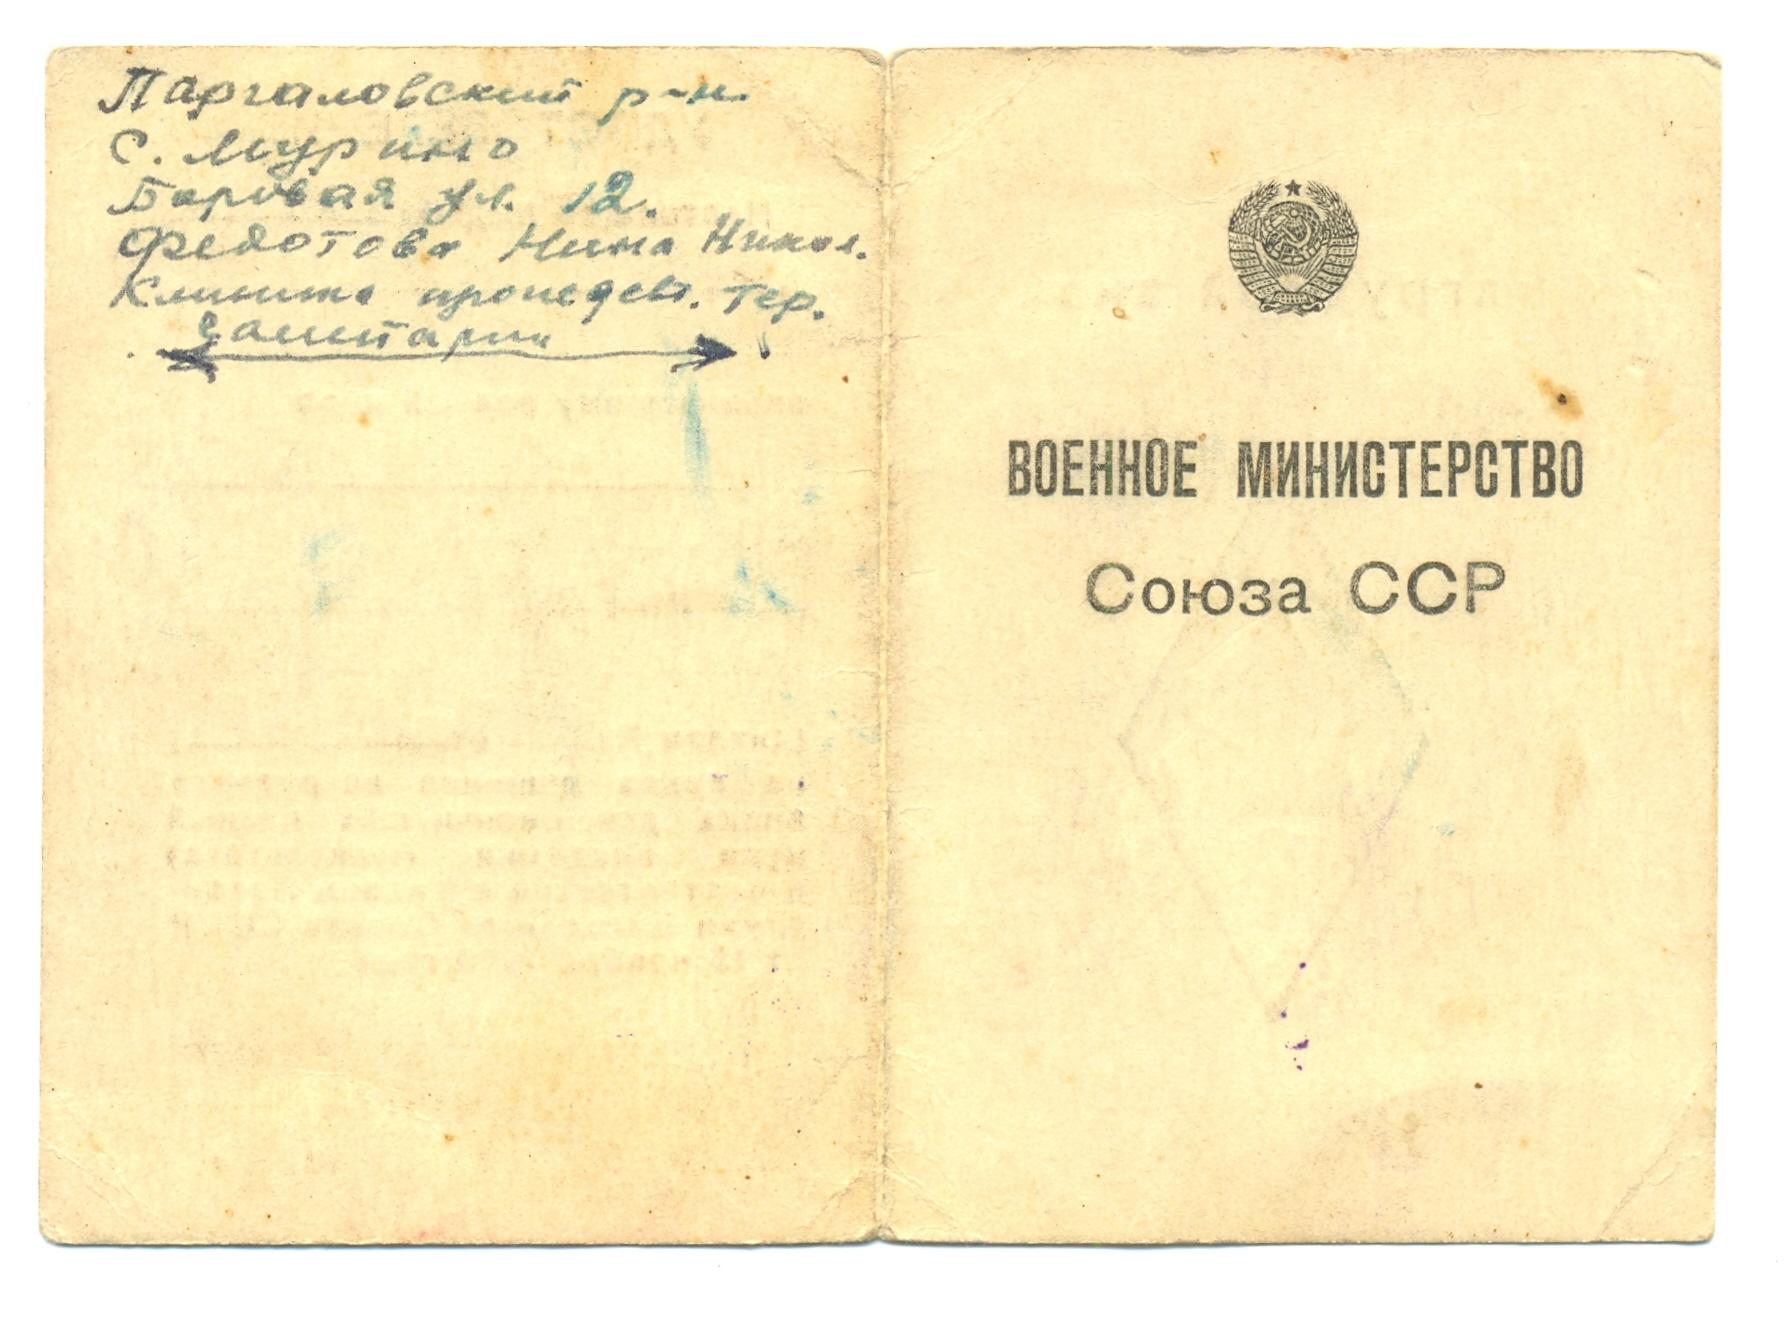 Паргаловский р-н.
С. Мурино
Боровая ул. 12.
Федотова Нина Никол.
Клиника пропедев. тер.
санитарки
ВОЕННОЕ МИНИСТЕРСТВО
Союза ССР